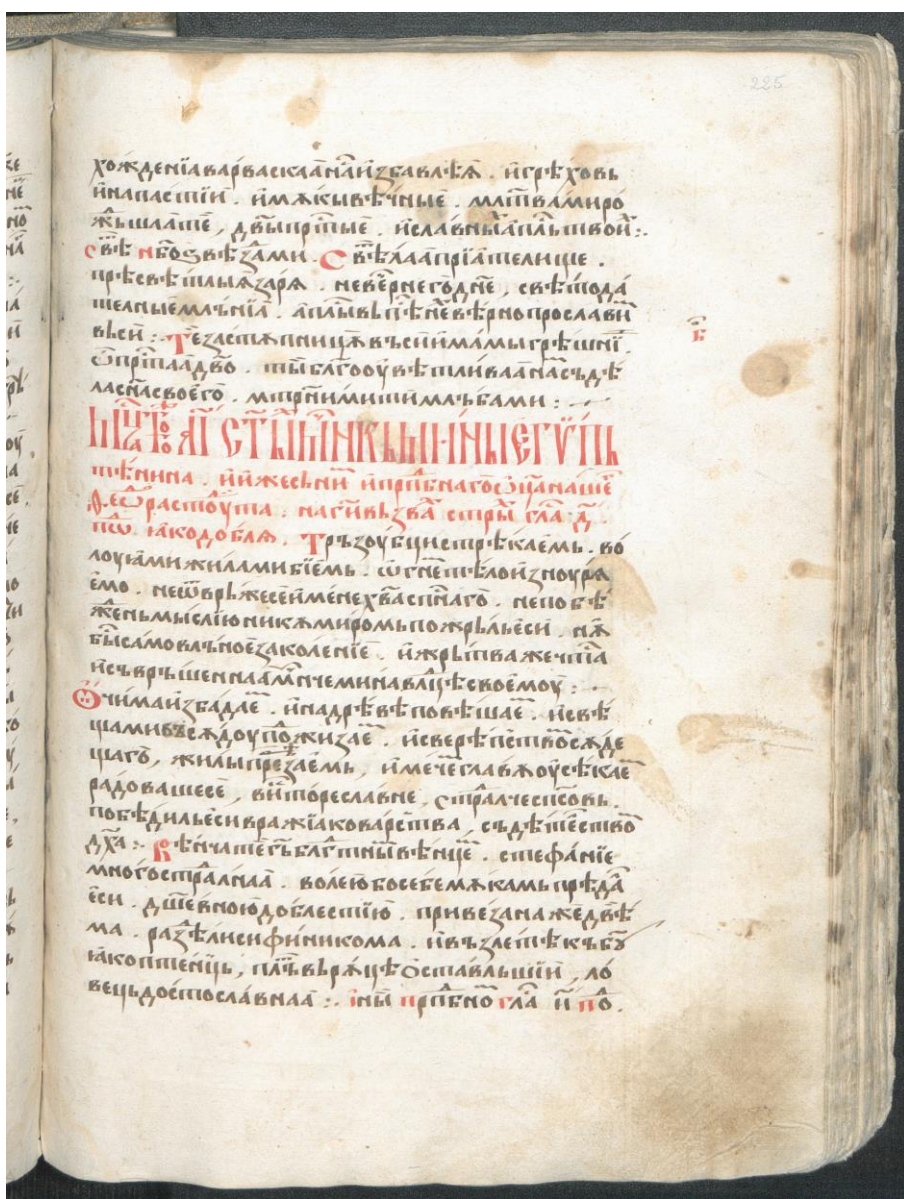 225
хожденїа варваскаа на̑ избавлѣѧ . и҆ грѣховь
и҆ напастїи . и҆ мѫкы вѣчные . мл҃твами ро
жⷣьшаа те̑ , дв҃ы прⷭ҇тые . и҆ славны̑ а҆пⷭ҇ль твои̑ :.
свѣ нб҃о ѕвѣздами . Свѣтлаа прїателище .
прѣсвѣтлыѧ зарѧ . невечерне го дн҃е , свѣтода
телные млънїа . а҆пⷭ҇лы вь пѣ̑не вѣрно прослави̑
вьси : Те застѫпницѫ въси и҆мамы грѣшнїи̑
ѿ прⷭ҇таа дв҃о . ты бл҃гооувѣтлива а҆ на̑ съдѣ
ла сн҃а своего . мт҃рними ти мл҃ьбами :
б҃
мⷭ҇ца то̑ а҃і ст҃го мч҃нка мины е҆гѵпь
тѣнина . и҆ иже сь ни̑ и҆ прⷣпбнаго ѿца наше̑
Ѳеѡ̑ра стоуⷣта : на ги̑ вьзва̑ стры̑ гла̑ д҃
пѡ̑ ꙗко добла . Трьзоубци стрѣкаемь . во
лоуꙗми жилами бїемь . ѡгне̑ тѣло и҆зноурѧ
е҆мо . не ѿврьже се и҆мене хв҃а сп҃наго . непобѣ
жⷣень мыслїю никѫ миромь пожрьль еси . нѫ
бы̑ самовлъное заколенїе . и҆ жрьтва жечтїа
и҆ съврьшеннаа мч҃ниче мина влⷣцѣ своемоу :
Ѻчима и҆збадае̑ . и҆ на дрѣвѣ повѣшае̑ . и҆ свѣ
щами вьсѫдоу пожизае̑ . и҆ сверѣпство̑ сѫде
щаго , жилы прѣрѣзаемь , и҆ мече̑ главѫ оусѣкае̑
радоваше се , ви̑торе славне , стрⷭ҇алче сп҃совь .
побѣдиль еси вражїа коварства , съдѣте̑ство̑
дх҃а : Вѣнча те г҃ь бл҃гтны̑ вѣнце̑ . стефанїе
многострⷣалнаа . волею бо себе мѫкамь прѣда̑
е҆си . дш҃евною доблестїю . привезана же двѣ
ма . раздѣли си финикома . и҆ възлетѣ къ бу̑
ꙗко птенць , пль̑ вь рѫцѣ ѻставльшїи , ло
вець достославнаа :. ины̑ прⷣпбно̑ гла̑ и҃ по̑ .